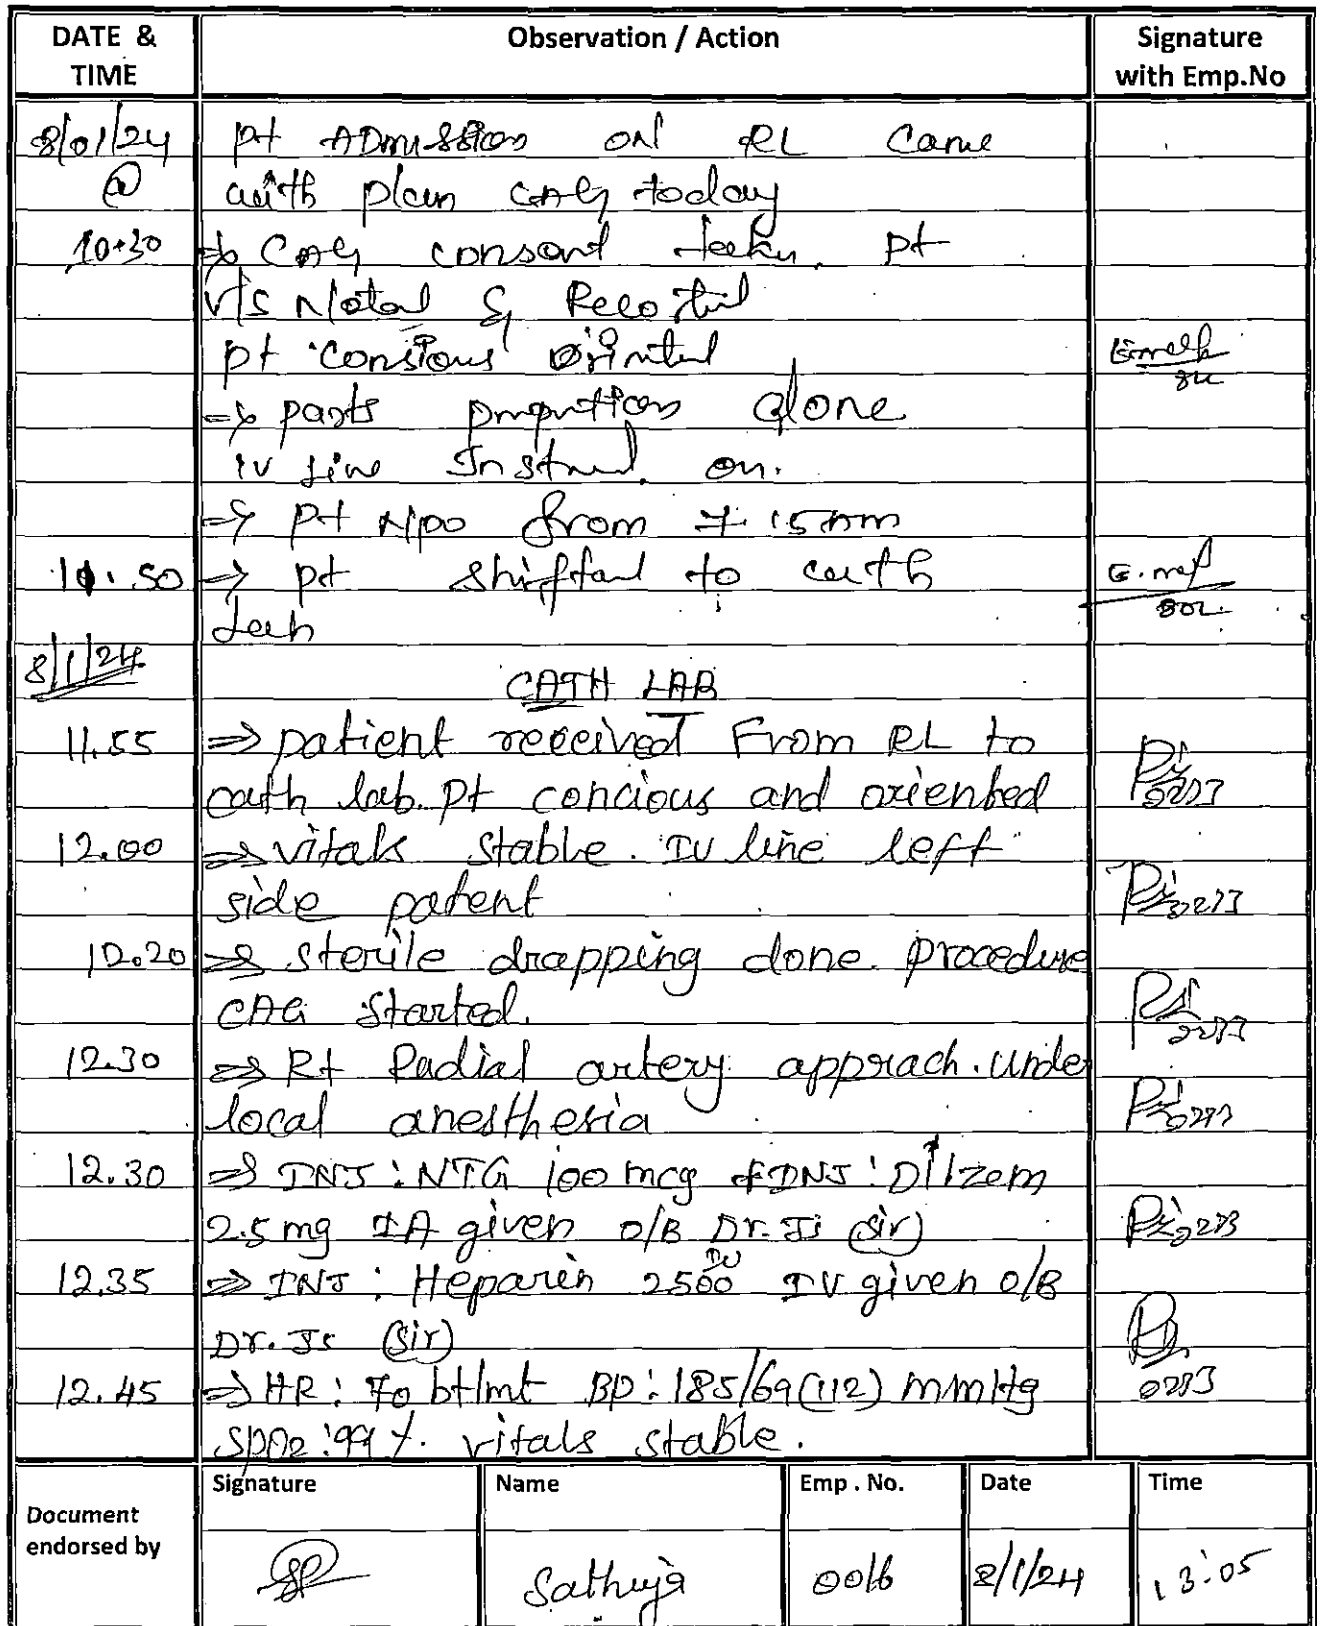 DATE & TIME
Observation / Action
Signature with Emp.No
8/01/24 pt ADmission ON RL Came
@ with plan CAG today
10:30 CAG consant pt
V/S Noted &
pt consious
=> parts done
iv line on.
=> pt Npo from 7.15 Am
=> pt shifted to cath
Lab
8/1/24
CATH LAB
11.55 => patient received From RL to
cath lab. pt concious and oriented
12.00 => vitals stable. IV line left
side patent
12.20 => sterile drapping done. procedure
CAG started.
12.30 => Rt Radial artery apprach. under
local anesthesia
12.30 => INJ: NTG 100 mcg + INJ: Dilzem
2.5 mg IA given O/B Dr. Js (sir)
12.35 => INJ: Heparin 2500 IU IV given O/B
Dr. Js (sir)
12.45 => HR: 70 bt/mt BP: 185/69(112) mmHg
0273
SPO2: 99 %. vitals stable.
Document endorsed by
Signature Name Emp . No. Date Time
Sathuja 0016 8/1/24 13:05